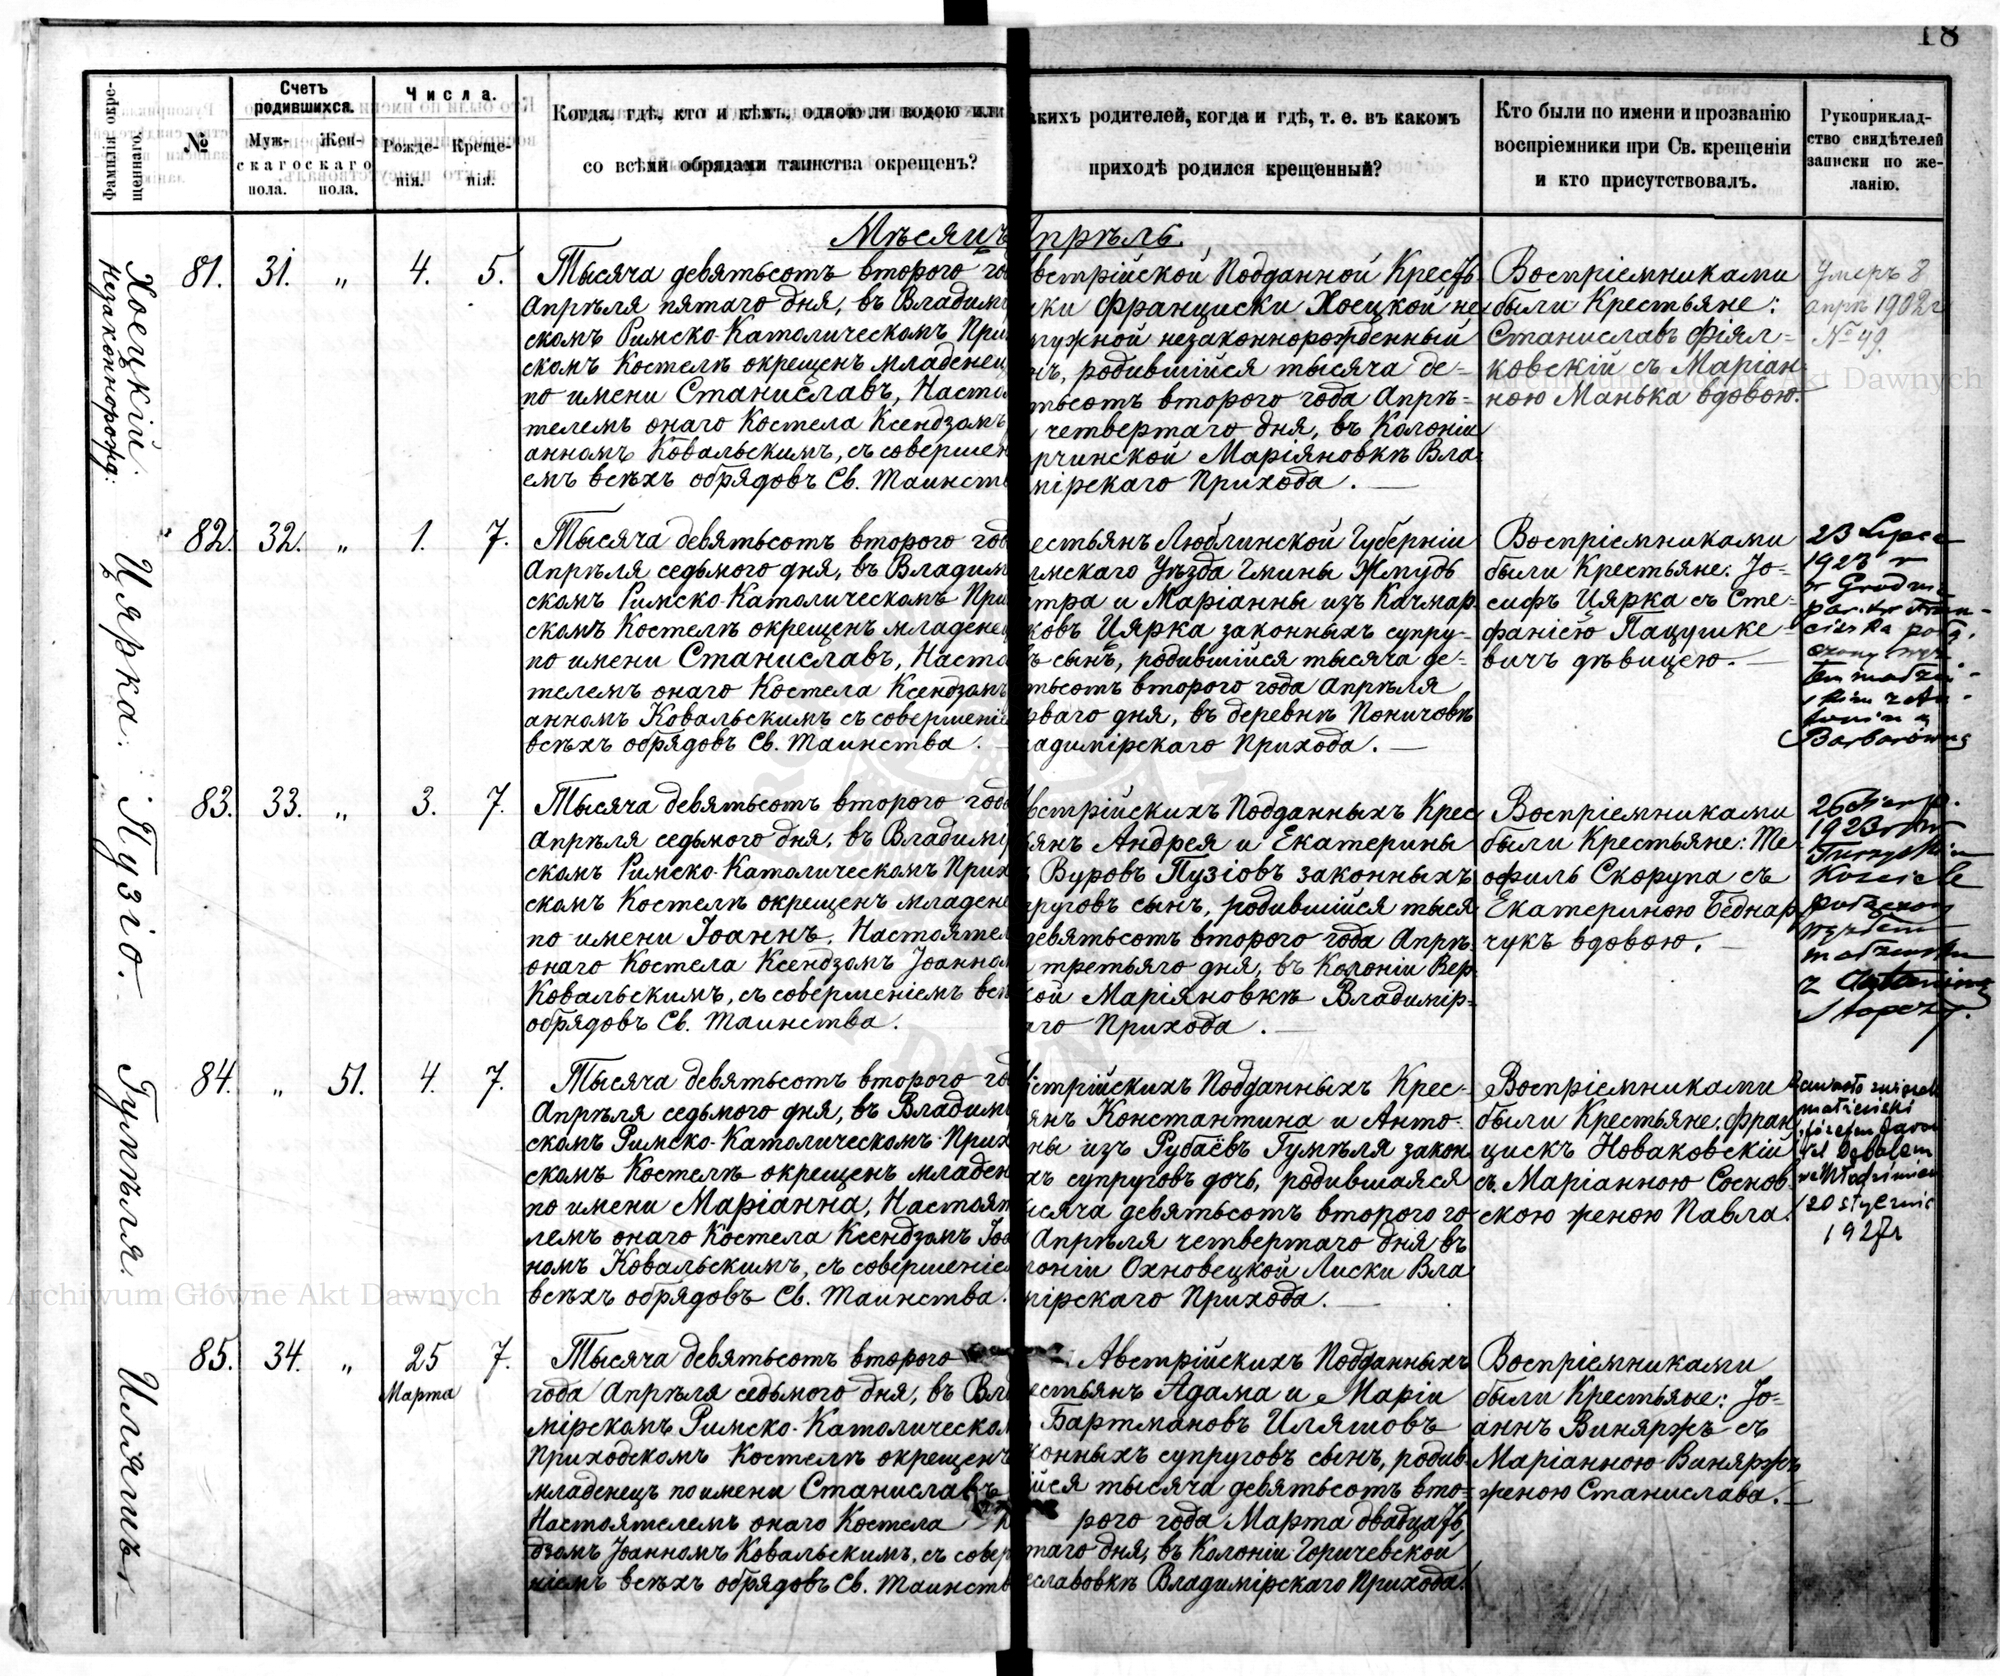 18
фамилія окрещеннаго.
№
Счетъ родившихся.
Мужскаго пола.
Женскаго пола.
Числа.
Рожденія.
Крещенія.
Когда, гдѣ, кто и кѣмъ, одною ли водою или
со всѣми обрядами таинства окрещенъ?
акихъ родителей, когда и гдѣ, т. е. въ каком
приходѣ родился крещенный?
Кто были по имени и прозванію
воспріемники при Св. крещеніи
и кто присутствовалъ.
Рукоприклад-
ство свидѣтелей
записки по же-
ланію.
Мѣсяцъ Апрѣль.
Хоецкій.
Незаконнорожд:
81. 31. „ 4. 5.
Тысяча девятьсотъ второго го
Апрѣля пятаго дня, въ Владим
скомъ Римско-Католическомъ При
скомъ Костелѣ окрещенъ младенец
по имени Станиславъ, Насто
телемъ онаго Костела Ксендзомъ
анномъ Ковальскимъ, съ совершен
емъ всѣхъ обрядовъ Св. Таинств
встрійской Подданной Кресть
ки Франциски Хоецкой не
мужной незаконнорожденный
нъ, родившійся тысяча де=
тьсотъ второго года Апрѣ=
четвертаго дня, въ Колоніи
рчинской Маріяновкѣ Вла=
мірскаго Прихода.
Воспріемниками
были Крестьяне:
Станиславъ Фіял=
ковскій съ Маріан=
ною Манька вдовою.
Умеръ 8
апр. 1902 г
№ 49.
Цярка.
82. 32. „ 1. 7.
Тысяча девятьсотъ второго год
Апрѣля седьмого дня, въ Владим
скомъ Римско-Католическомъ При
скомъ Костелѣ окрещенъ младене
по имени Станиславъ, Насто
телемъ онаго Костела Ксендзомъ
анномъ Ковальскимъ съ совершеніе
всѣхъ обрядовъ Св. Таинства.
естьянъ Люблинской Губерніи
лмскаго Уѣзда Гмины Жмудь
етра и Маріанны изъ Качмар
ковъ Цярка законныхъ супру=
ъ сынъ, родившійся тысяча де=
тьсотъ второго года Апрѣля
рваго дня, въ деревнѣ Поничовѣ
ладимірскаго Прихода.
Воспріемниками
были Крестьяне: Іо=
сифъ Цярка съ Сте=
фаніею Пацушке=
вичъ дѣвицею.
23 Lipca
1923 r
Barbarówną
Пузіо.
83. 33. „ 3. 7.
Тысяча девятьсотъ второго года
Апрѣля седьмого дня, въ Владимі
скомъ Римско-Католическомъ Прих
скомъ Костелѣ окрещенъ младене
по имени Іоаннъ, Настоятел
онаго Костела Ксендзомъ Іоанно
Ковальскимъ, съ совершеніемъ всѣ
обрядовъ Св. Таинства.
встрійскихъ Подданныхъ Крес
ьянъ Андрея и Екатерины
ъ Вуровъ Пузіовъ законныхъ
пруговъ сынъ, родившійся тыся
девятьсотъ второго года Апрѣ=
третьяго дня, въ Колоніи Вер
кой Маріяновкѣ Владимір=
аго Прихода.
Воспріемниками
были Крестьяне: Те=
офиль Скорупа съ
Екатериною Беднар
чукъ вдовою.
1923
Kościele
z Antoniną
Гумѣля.
84. „ 51. 4. 7.
Тысяча девятьсотъ второго го
Апрѣля седьмого дня, въ Владим
скомъ Римско-Католическомъ Прих
скомъ Костелѣ окрещенъ младен
по имени Маріанна, Настоят
лемъ онаго Костела Ксендзомъ Іоа
номъ Ковальскимъ, съ совершеніе
всѣхъ обрядовъ Св. Таинства.
стрійскихъ Подданныхъ Крес-
янъ Константина и Анто-
ны изъ Рубаёвъ Гумѣля закон
хъ супруговъ дочь, родившаяся
ысяча девятьсотъ второго го
Апрѣля четвертаго дня въ
лоніи Охновецкой Лиски Вла
мірскаго Прихода.
Воспріемниками
были Крестьяне: Фран
цискъ Новаковскій
съ Маріанною Соснов
скою женою Павла.
zawarła związek
małżeński
z Józefem
Dębalem
we Włodzimierzu
20 stycznia
1927 r
Иляшъ.
85. 34. „ 25 Марта 7.
Тысяча девятьсотъ второго
года Апрѣля седьмого дня, въ Вла
мірскомъ Римско-Католическом
Приходскомъ Костелѣ окрещенъ
младенецъ по имени Станиславъ
Настоятелемъ онаго Костела
дзомъ Іоанномъ Ковальскимъ, съ совер
ніемъ всѣхъ обрядовъ Св. Таинств
Австрійскихъ Подданныхъ
естьянъ Адама и Маріи
ъ Бартмановъ Иляшовъ
конныхъ супруговъ сынъ, родив-
ійся тысяча девятьсотъ вто=
рого года Марта двадцать
таго дня, въ Колоніи Горичевской
еславовкѣ Владимірскаго Прихода.
Воспріемниками
были Крестьяне: Іо=
аннъ Виняржъ съ
Маріанною Виняржъ
женою Станислава.
Archiwum Główne Akt Dawnych
Archiwum Główne Akt Dawnych